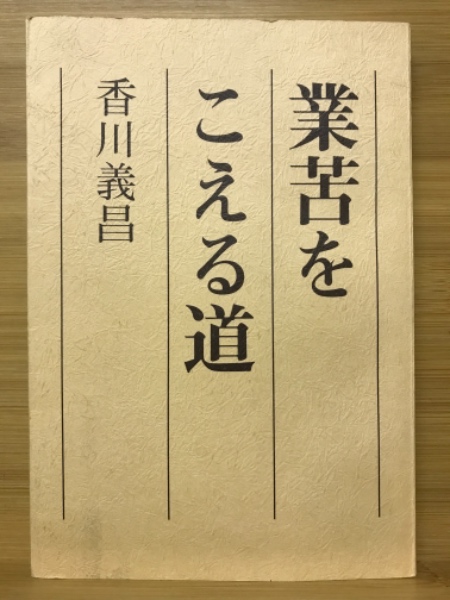 業苦を
こえる道
香川義昌